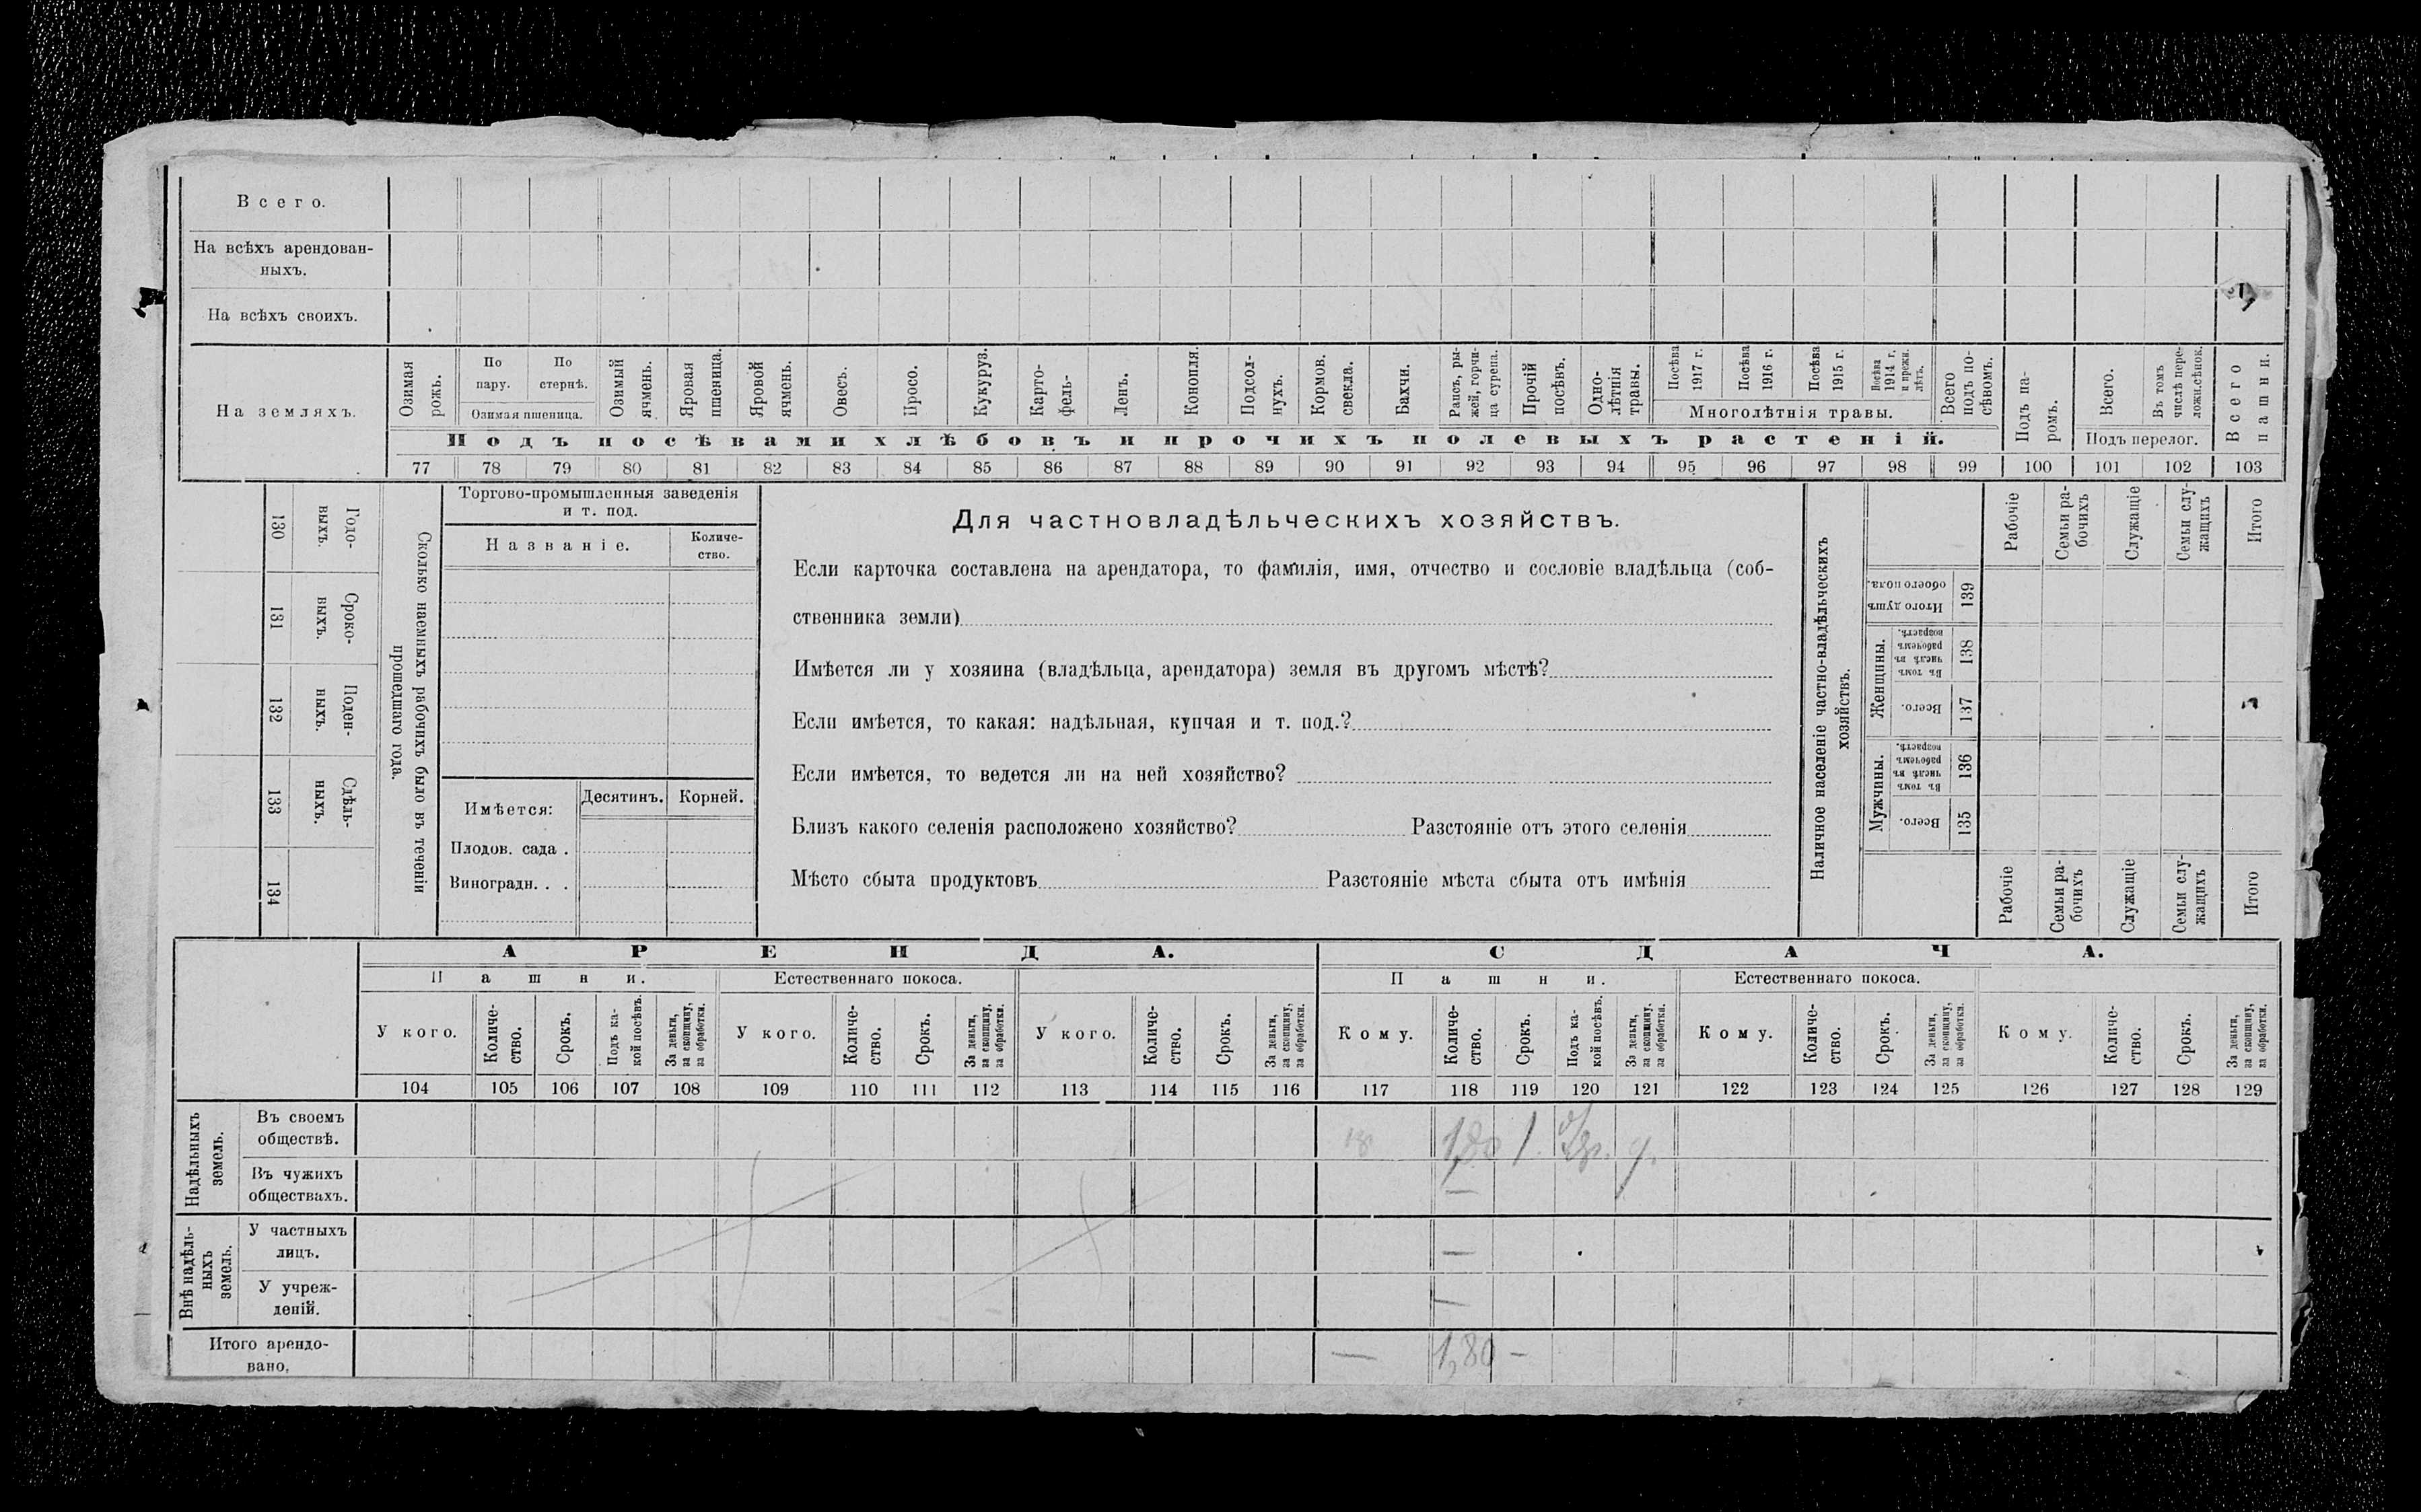 Всего.
На всѣхъ арендован-
ныхъ.
На всѣхъ своихъ.
На земляхъ.
Озимая рожь.
По пару.
По стернѣ.
Озимая пшеница.
Озимый ячмень.
Яровая пшеница.
Яровой ячмень.
Овесъ.
Просо.
Кукуруз.
Карто-
фель-
Ленъ.
Конопля.
Подсол-
нухъ.
Кормов.
свекла.
Бахчи.
Рапсъ, ры-
жей, горчи-
ца сурепа.
Прочій
посѣвъ.
Одно-
лѣтнія
травы.
Посѣва
1917 г.
Посѣва
1916 г.
Посѣва
1915 г.
Посѣва
1914 г.
и прежн.
лѣтъ.
Многолѣтнія травы.
Всего
подъ по-
сѣвомъ.
Подъ па-
ромъ.
Всего.
Въ томъ
числѣ пере-
ложн.сѣнок.
Подъ перелог.
Всего
пашни.
Подъ посѣвами хлѣбовъ и прочихъ полевыхъ растеній.
77 78 79 80 81 82 83 84 85 86 87 88 89 90 91 92 93 94 95 96 97 98 99 100 101 102 103
130
Годо-
выхъ.
131
Сроко-
выхъ.
132
Поден-
ныхъ.
133
Сдѣль-
ныхъ.
134
Сколько наемныхъ рабочихъ было въ теченіи
прошедшаго года.
Торгово-промышленныя заведенія
и т. под.
Названіе.
Количе-
ство.
Имѣется:
Десятинъ.
Корней.
Плодов. сада .
Виноградн. . .
Для частновладѣльческихъ хозяйствъ.
Если карточка составлена на арендатора, то фамилія, имя, отчество и сословіе владѣльца (соб-
ственника земли)
Имѣется ли у хозяина (владѣльца, арендатора) земля въ другомъ мѣстѣ?
Если имѣется, то какая: надѣльная, купчая и т. под.?
Если имѣется, то ведется ли на ней хозяйство?
Близъ какого селенія расположено хозяйство? Разстояніе отъ этого селенія
Мѣсто сбыта продуктовъ Разстояніе мѣста сбыта отъ имѣнія
Наличное населеніе частно-владѣльческихъ
хозяйствъ.
Рабочіе
Семьи ра-
бочихъ
Служащіе
Семьи слу-
жащихъ
Итого
Итого душъ
обоего пола.
139
Женщины.
Въ томъ
числѣ въ
рабочемъ
возрастѣ.
138
Всего.
137
Мужчины.
Въ томъ
числѣ въ
рабочемъ
возрастѣ.
136
Всего.
135
Рабочіе
Семьи ра-
бочихъ
Служащіе
Семьи слу-
жащихъ
Итого
АРЕНДА.
СДАЧА.
Пашни.
Естественнаго покоса.
Пашни.
Естественнаго покоса.
У кого.
Количе-
ство.
Срокъ.
Подъ ка-
кой посѣвъ.
За деньги,
за скопщину,
за обработки.
У кого.
Количе-
ство.
Срокъ.
За деньги,
за скопщину,
за обработки.
У кого.
Количе-
ство.
Срокъ.
За деньги,
за скопщину,
за обработки.
Кому.
Количе-
ство.
Срокъ.
Подъ ка-
кой посѣвъ.
За деньги,
за скопщину,
за обработки.
Кому.
Количе-
ство.
Срокъ.
За деньги,
за скопщину,
за обработки.
Кому.
Количе-
ство.
Срокъ.
За деньги,
за скопщину,
за обработки.
104 105 106 107 108 109 110 111 112 113 114 115 116 117 118 119 120 121 122 123 124 125 126 127 128 129
Надѣльныхъ
земель.
Въ своемъ
обществѣ.
1,80 1.
Въ чужихъ
обществахъ.
—
Внѣ надѣль-
ныхъ
земель.
У частныхъ
лицъ.
—
У учреж-
деній.
—
Итого арендо-
вано.
— 1,80 —